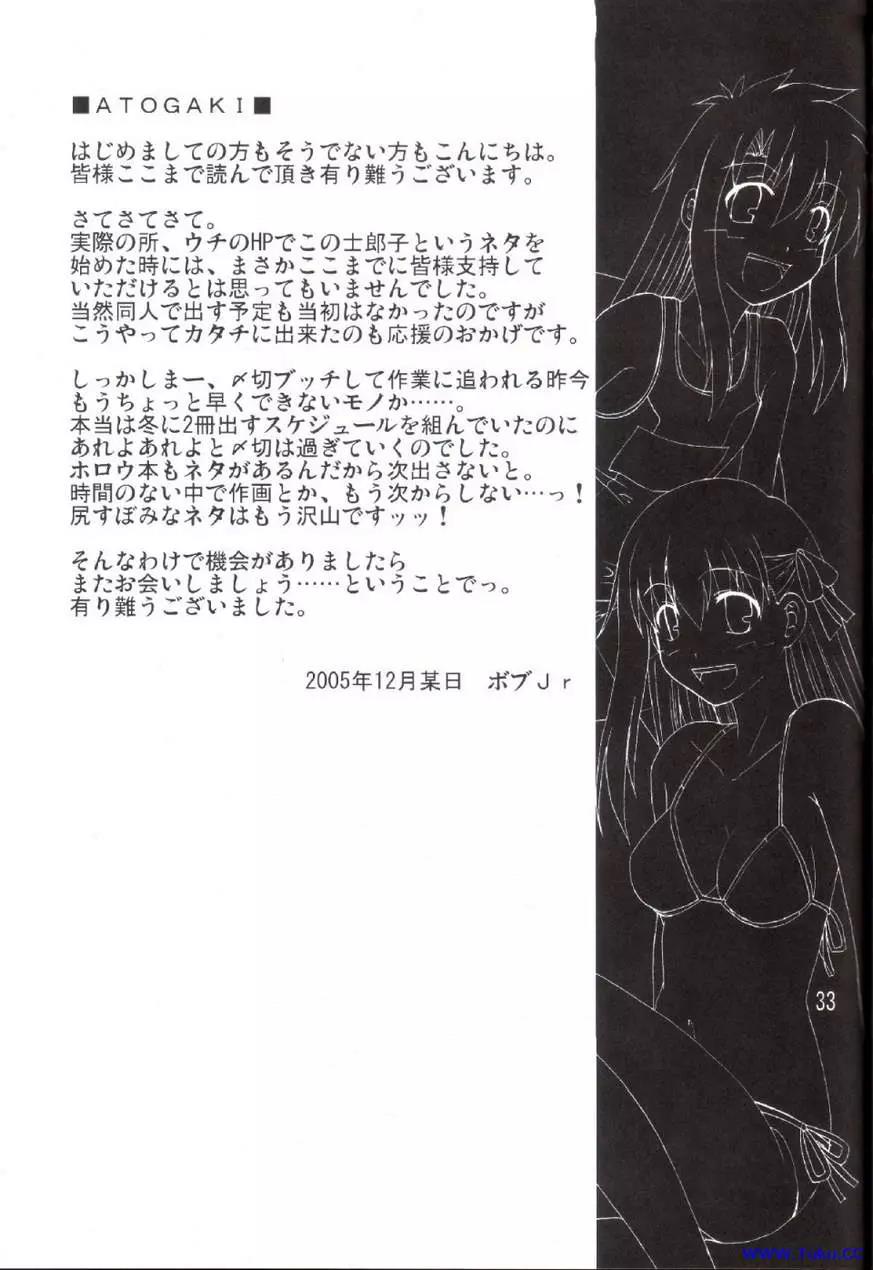 ■ATOGAKI■
はじめましての方もそうでない方もこんにちは。
皆様ここまで読んで頂き有り難うございます。
さてさてさて。
実際の所、ウチのHPでこの士郎子というネタを
始めた時には、まさかここまでに皆様支持して
いただけるとは思ってもいませんでした。
当然同人で出す予定も当初はなかったのですが
こうやってカタチに出来たのも応援のおかげです。
しっかしまー、〆切ブッチして作業に追われる昨今
もうちょっと早くできないモノか……。
本当は冬に2冊出すスケジュールを組んでいたのに
あれよあれよと〆切は過ぎていくのでした。
ホロウ本もネタがあるんだから次出さないと。
時間のない中で作画とか、もう次からしない…っ！
尻すぼみなネタはもう沢山ですッッ！
そんなわけで機会がありましたら
またお会いしましょう……ということでっ。
有り難うございました。
2005年12月某日　ボブＪｒ
33
www.Tuku.CC